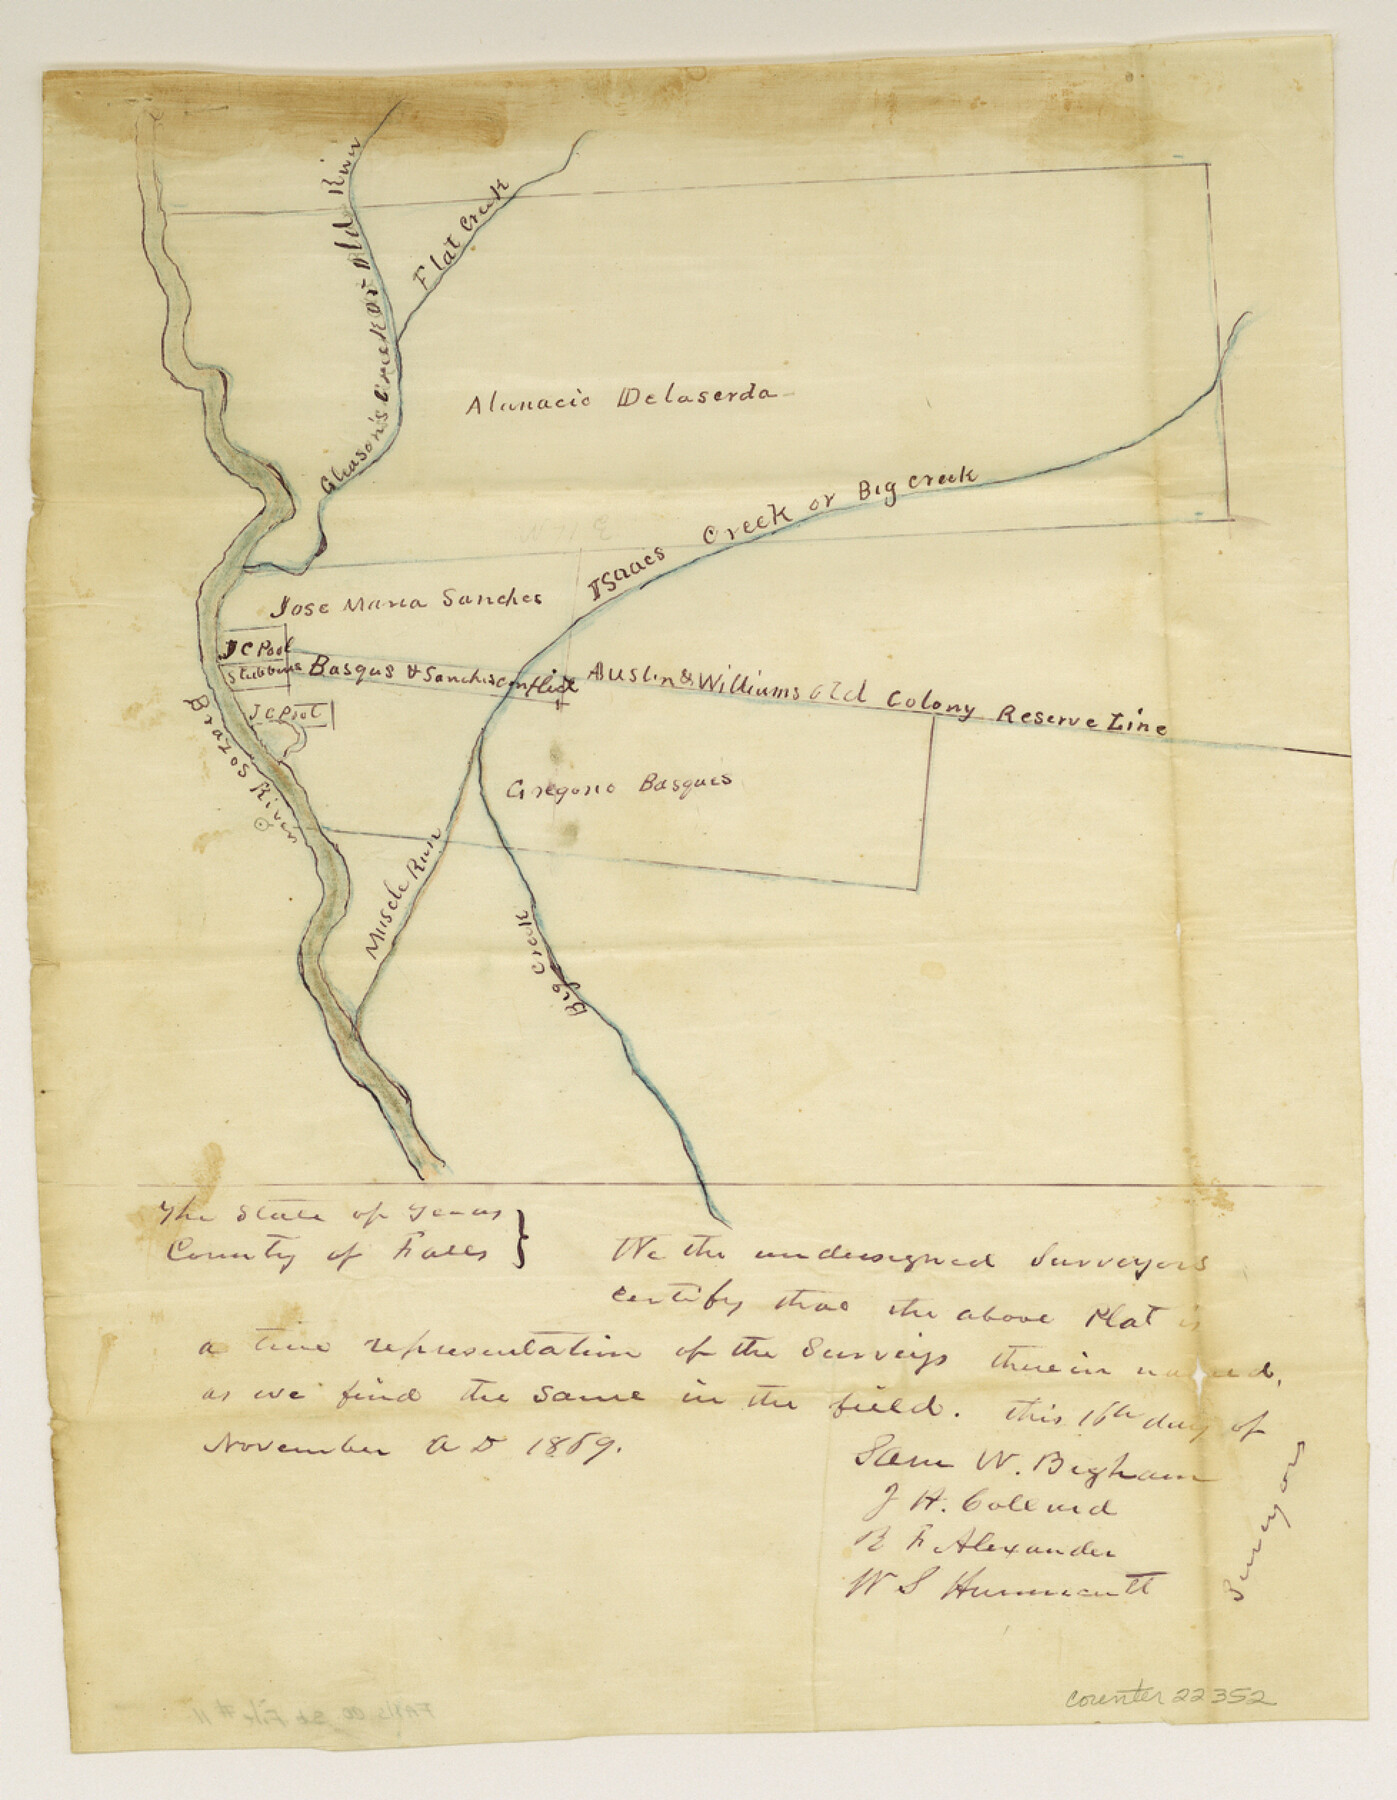 Gleason's Creek or Old River
Flat Creek
Alanacio Delaserda
Isaacs Creek or Big Creek
Jose Maria Sanches
J C Pool
Stubbins
Basqus & Sanchis conflict
Austin & Williams Old Colony Reserve Line
J C Pool
Brazos River
Gregorio Basques
Muscle Run
Big Creek
The State of Texas
County of Falls
We the undersigned Surveyors
certify that the above Plat is
a true representation of the Surveys therein named,
as we find the same in the field. this 16th day of
November A D 1869.
Sam W. Bigham
J H. Collard
R F Alexander
W S Hunnicutt
Surveyors
counter 22352
Falls Co. Sk File # 11